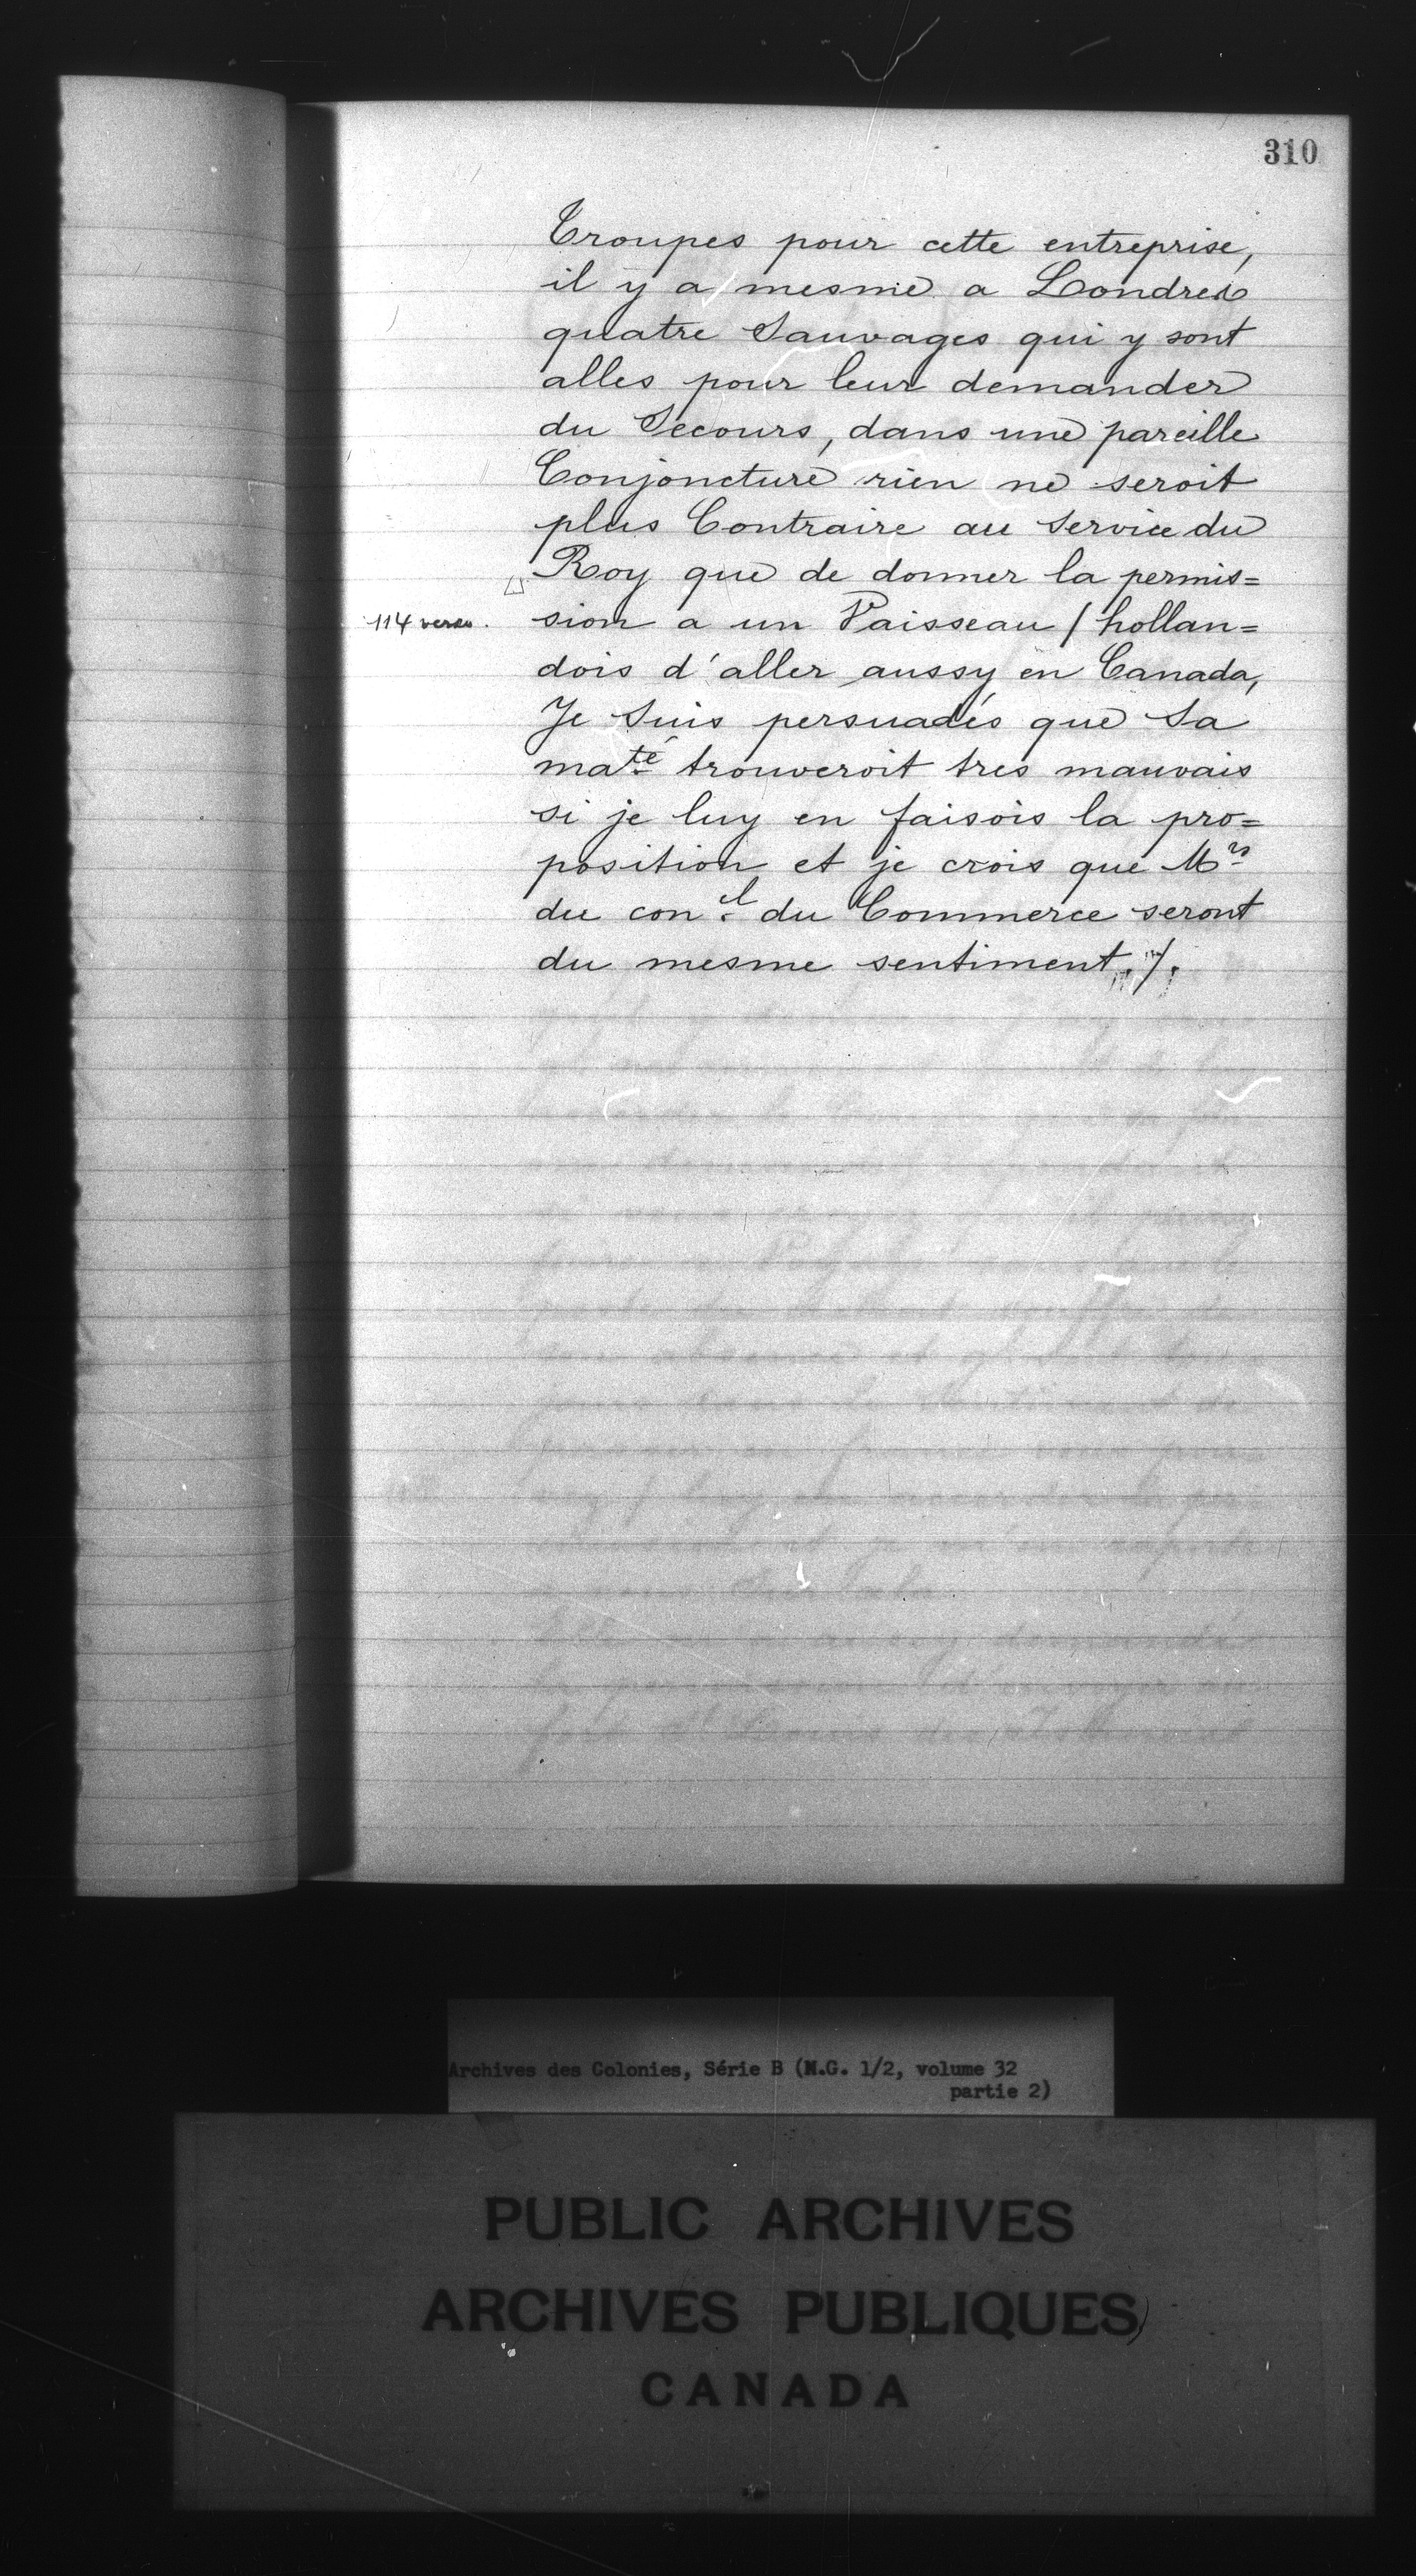 310
Troupes pour cette entreprise,
il y a mesme a Londres
quatre Sauvages qui y sont
alles pour leur demander
du Secours, dans une pareille
Conjoncture rien ne seroit
plus Contraire au service du
Roy que de donner la permis=
114 verso. sion a un Vaisseau / hollan=
dois d'aller aussy en Canada,
Je suis persuadés que Sa
ma.té trouveroit tres mauvais
si je luy en faisois la pro=
position et je crois que Mrs
du con.el du Commerce seront
du mesme sentiment./.
Archives des Colonies, Série B (M.G. 1/2, volume 32
partie 2)
PUBLIC ARCHIVES
ARCHIVES PUBLIQUES
CANADA